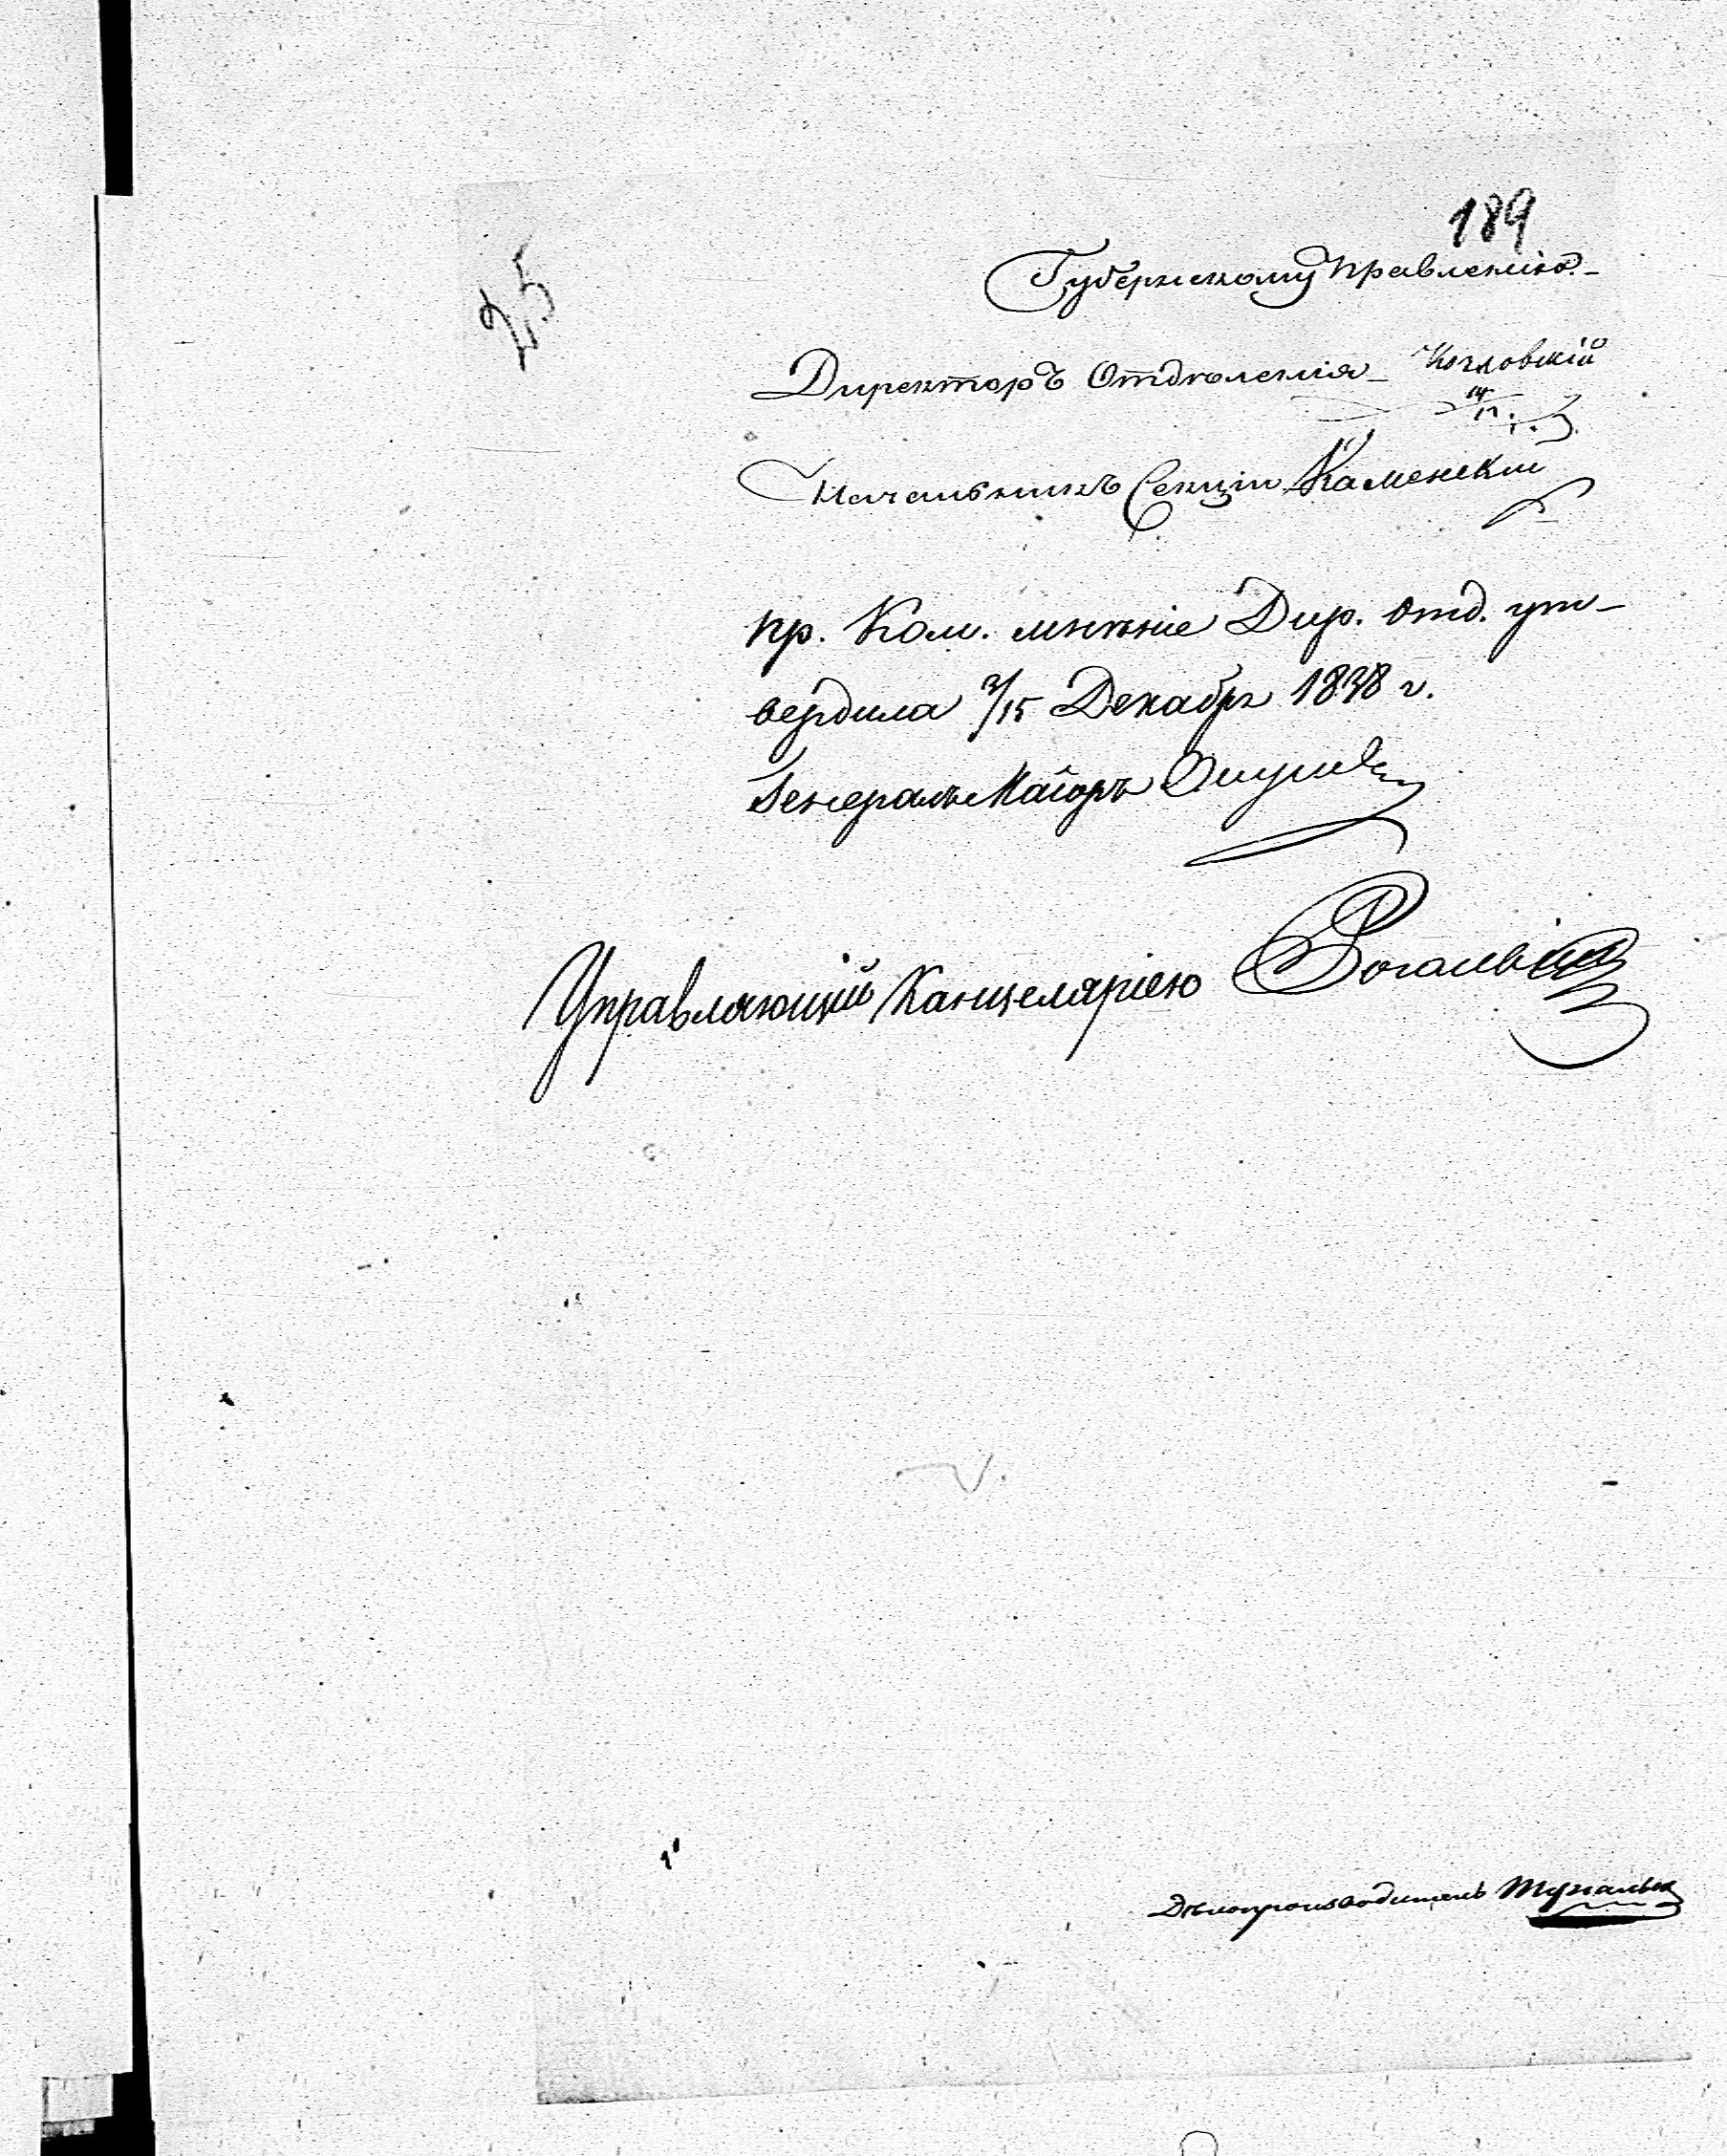 189
25
Губернскому Правленію.
Директоръ Отдѣленія Козловскій
Начальникъ Секціи Каменскій
пр. Ком. мнѣніе Дир. Отд. ут-
вердила 3/15 Декабря 1838 г.
Генералъ Маіоръ
Управляющій Канцеляріею
Дѣлопроизводитель